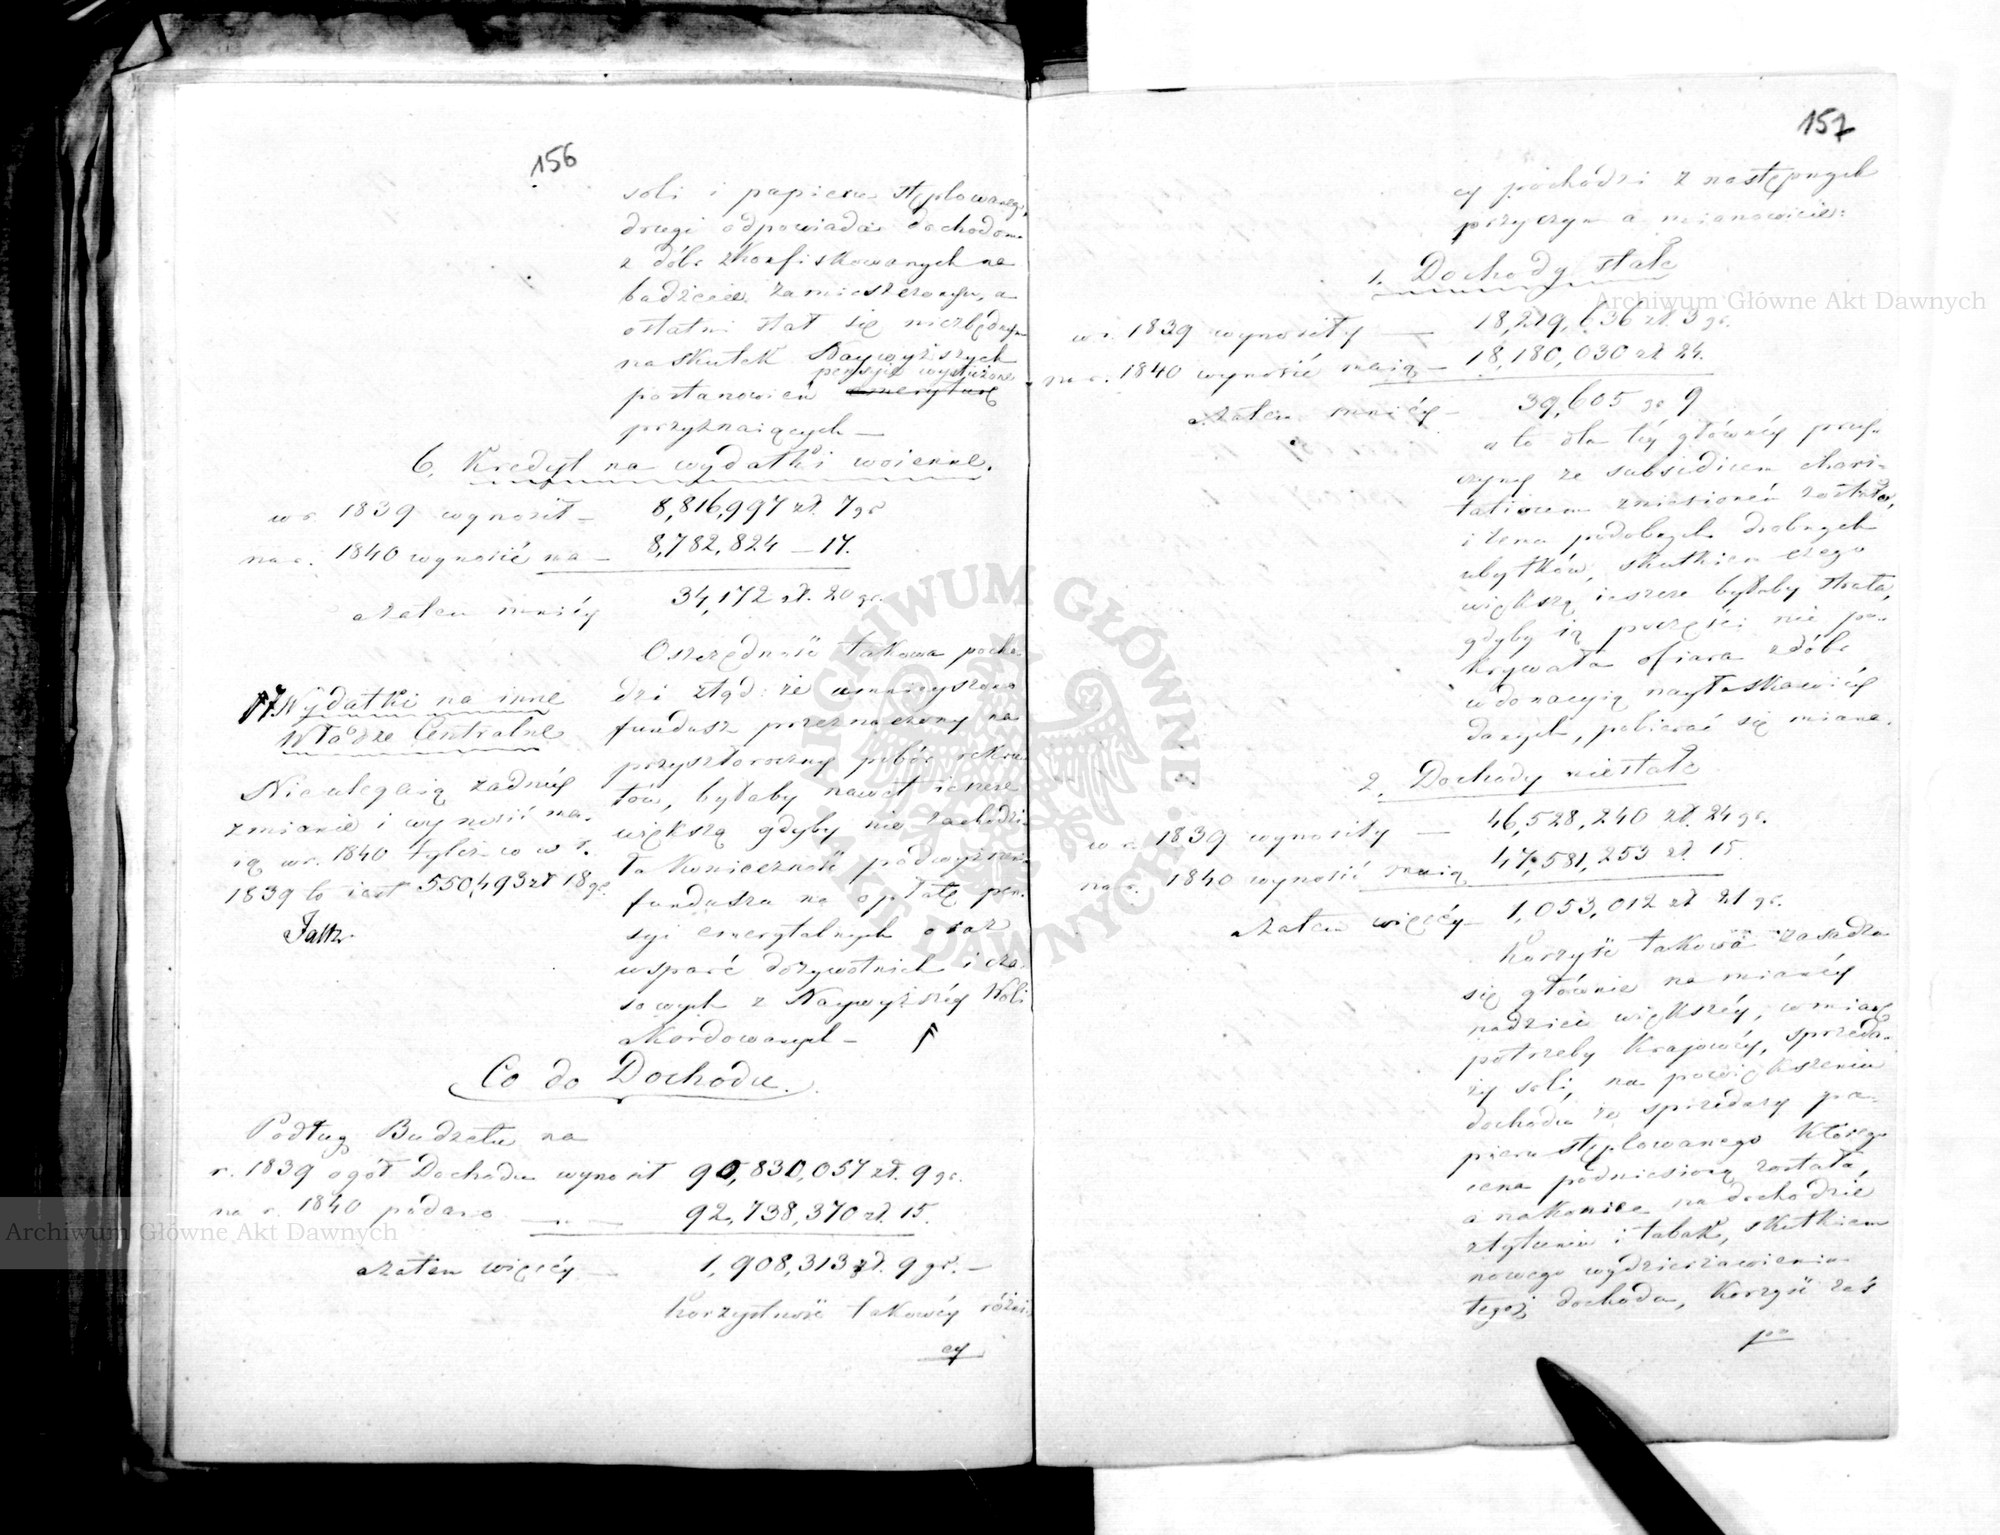 156
soli i papieru stęplowanego,
drugi odpowiada dochodom
z dóbr skonfiskowanych na
budżecie zamieszczonym, a
ostatni stał się niezbędnym
na skutek Naywyższych
pensyie wysłużone
postanowień emeryturę
przyznaiących —
6. Kredyt na wydatki woienne.
w r. 1839 wynosił — 8,816,997 zł. 7 gr
na r. 1840 wynosić ma — 8,782,824 — 17.
a zatem mniéy 34,172 zł. 20 gr.
Oszczędność takowa pocho-
dzi ztąd: że umnieyszono
fundusz przeznaczony na
przyszłoroczny pobór rekru-
tów, byłaby nawet ieszcze
większą gdyby nie zachodzi-
ła konieczność podwyższenia
funduszu na opłatę pen-
syi emerytalnych oraz
wsparć dożywotnich i cza-
sowych z Naywyższéy Woli
akordowanych —
17 Wydatki na inne
Władze Centralne
Nie ulegaią żadnéy
zmianie i wynosić ma-
ią w r. 1840 tyleż co w r.
1839 to iest 550,493 zł 18 gr.
Co do Dochodu.
Podług Budżetu na
r. 1839 ogół Dochodu wynosił 90,830,057 zł. 9 gr.
na r. 1840 podano — — 92,738,370 zł. 15.
a zatem więcéy — 1,908,313 zł. 9 gr. —
Korzystność takowéy różni-
cy
157
cy pochodzi z następnych
przyczyn a mianowicie:
1. Dochody stałe
w r. 1839 wynosiły — 18,219,636 zł. 3 gr.
na r. 1840 wynosić maią — 18,180,030 zł 24.
a zatem mniéy — 39,605 gr 9
a to dla téy głównéy przy-
czyny że subsidium chari-
tativum zniesioném zostało,
i tem podobnych drobnych
ubytków, skutkiem czego
większą ieszcze byłaby strata,
gdyby ią poczęści nie po-
krywała ofiara z dóbr
w donacyią nayłaskawiéy
danych, pobierać się miana.
2. Dochody niestałe
w r. 1839 wynosiły — 46,528,240 zł. 24 gr.
na r. 1840 wynosić maią 47,581,253 zł. 15.
a zatem więcéy — 1,053,012 zł 21 gr.
Korzyść takowa zasadza
się głównie na mianéy
nadziei większéy, w miarę
potrzeby Krajowéy, sprzeda-
ży soli, na powiększeniu
dochodu ze sprzedaży pa-
pieru stęplowanego którego
cena podniesioną została,
a nakoniec na dochodzie
z tytuniu i tabak, skutkiem
nowego wydzierżawienia
tegoż dochodu, korzyść zaś
po
Archiwum Główne Akt Dawnych
Archiwum Główne Akt Dawnych
ARCHIWUM GŁÓWNE AKT DAWNYCH